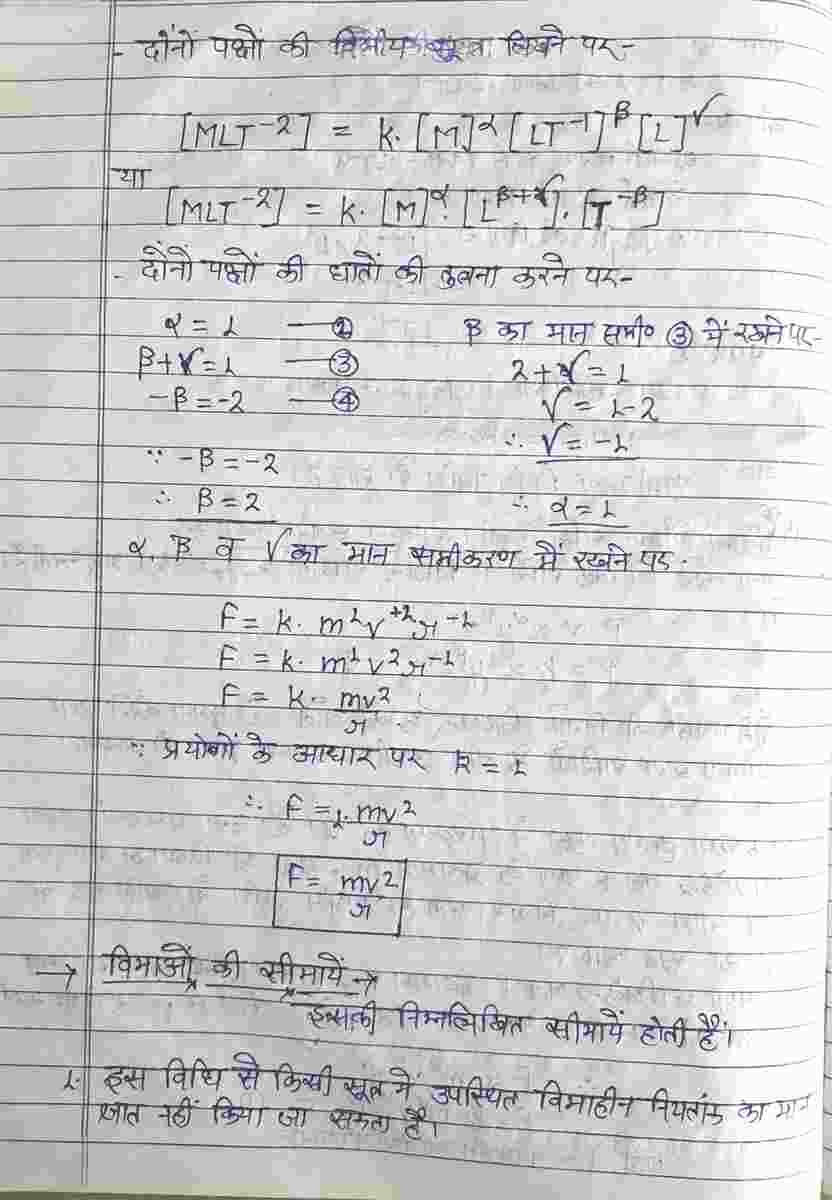 - दोंनो पक्षों की विमीय सूत्र लिखने पर-
[MLT⁻²] = K. [M]^α [LT⁻¹]^β [L]^γ
या
[MLT⁻²] = K. [M]^α. [L^β+γ]. [T^-β]
- दोंनो पक्षों की घातों की तुलना करने पर-
α = 1 —② β का मान समी० ③ में रखने पर-
β+γ=1 —③ 2+γ=1
-β=-2 —④ γ = 1-2
∴ γ = -1
∵ -β = -2
∴ β = 2 ∴ α = 1
α, β व γ का मान समीकरण में रखने पर.
F = K. m¹v⁺²r⁻¹
F = K. m¹v²r⁻¹
F = K. mv²/r
∵ प्रयोगों के आधार पर K = 1
∴ F = 1. mv²/r
F = mv²/r
→ विमाओं की सीमायें →
इसकी निम्नलिखित सीमायें होती हैं।
1. इस विधि से किसी सूत्र में उपस्थित विमाहीन नियतांक का मान
ज्ञात नहीं किया जा सकता है।